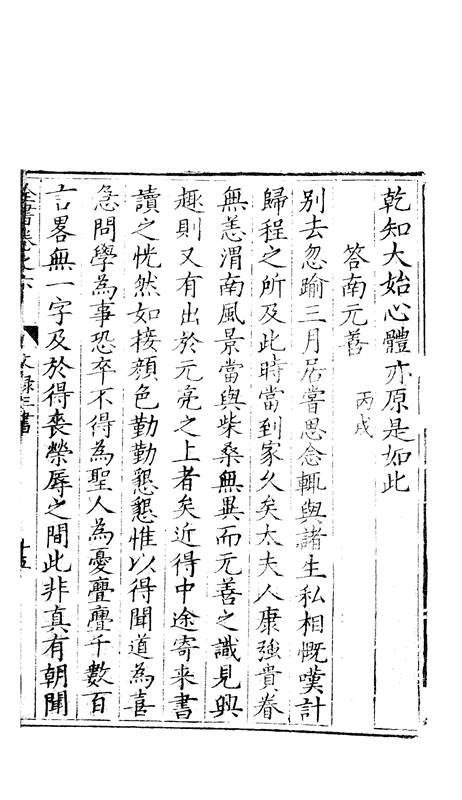 乾知大始心體亦原是如此
答南元善 丙戌
別去忽踰三月居嘗思念輒與諸生私相慨嘆計
歸程之所及此時當到家久矣太夫人康強貴眷
無恙渭南風景當與柴桑無異而元善之識見興
趣則又有出於元亮之上者矣近得中途寄来書
讀之恍然如接顏色勤勤懇懇惟以得聞道為喜
急問學為事恐卒不得為聖人為憂亹亹千數百
言畧無一字及於得喪榮辱之間此非真有朝聞
文錄三書